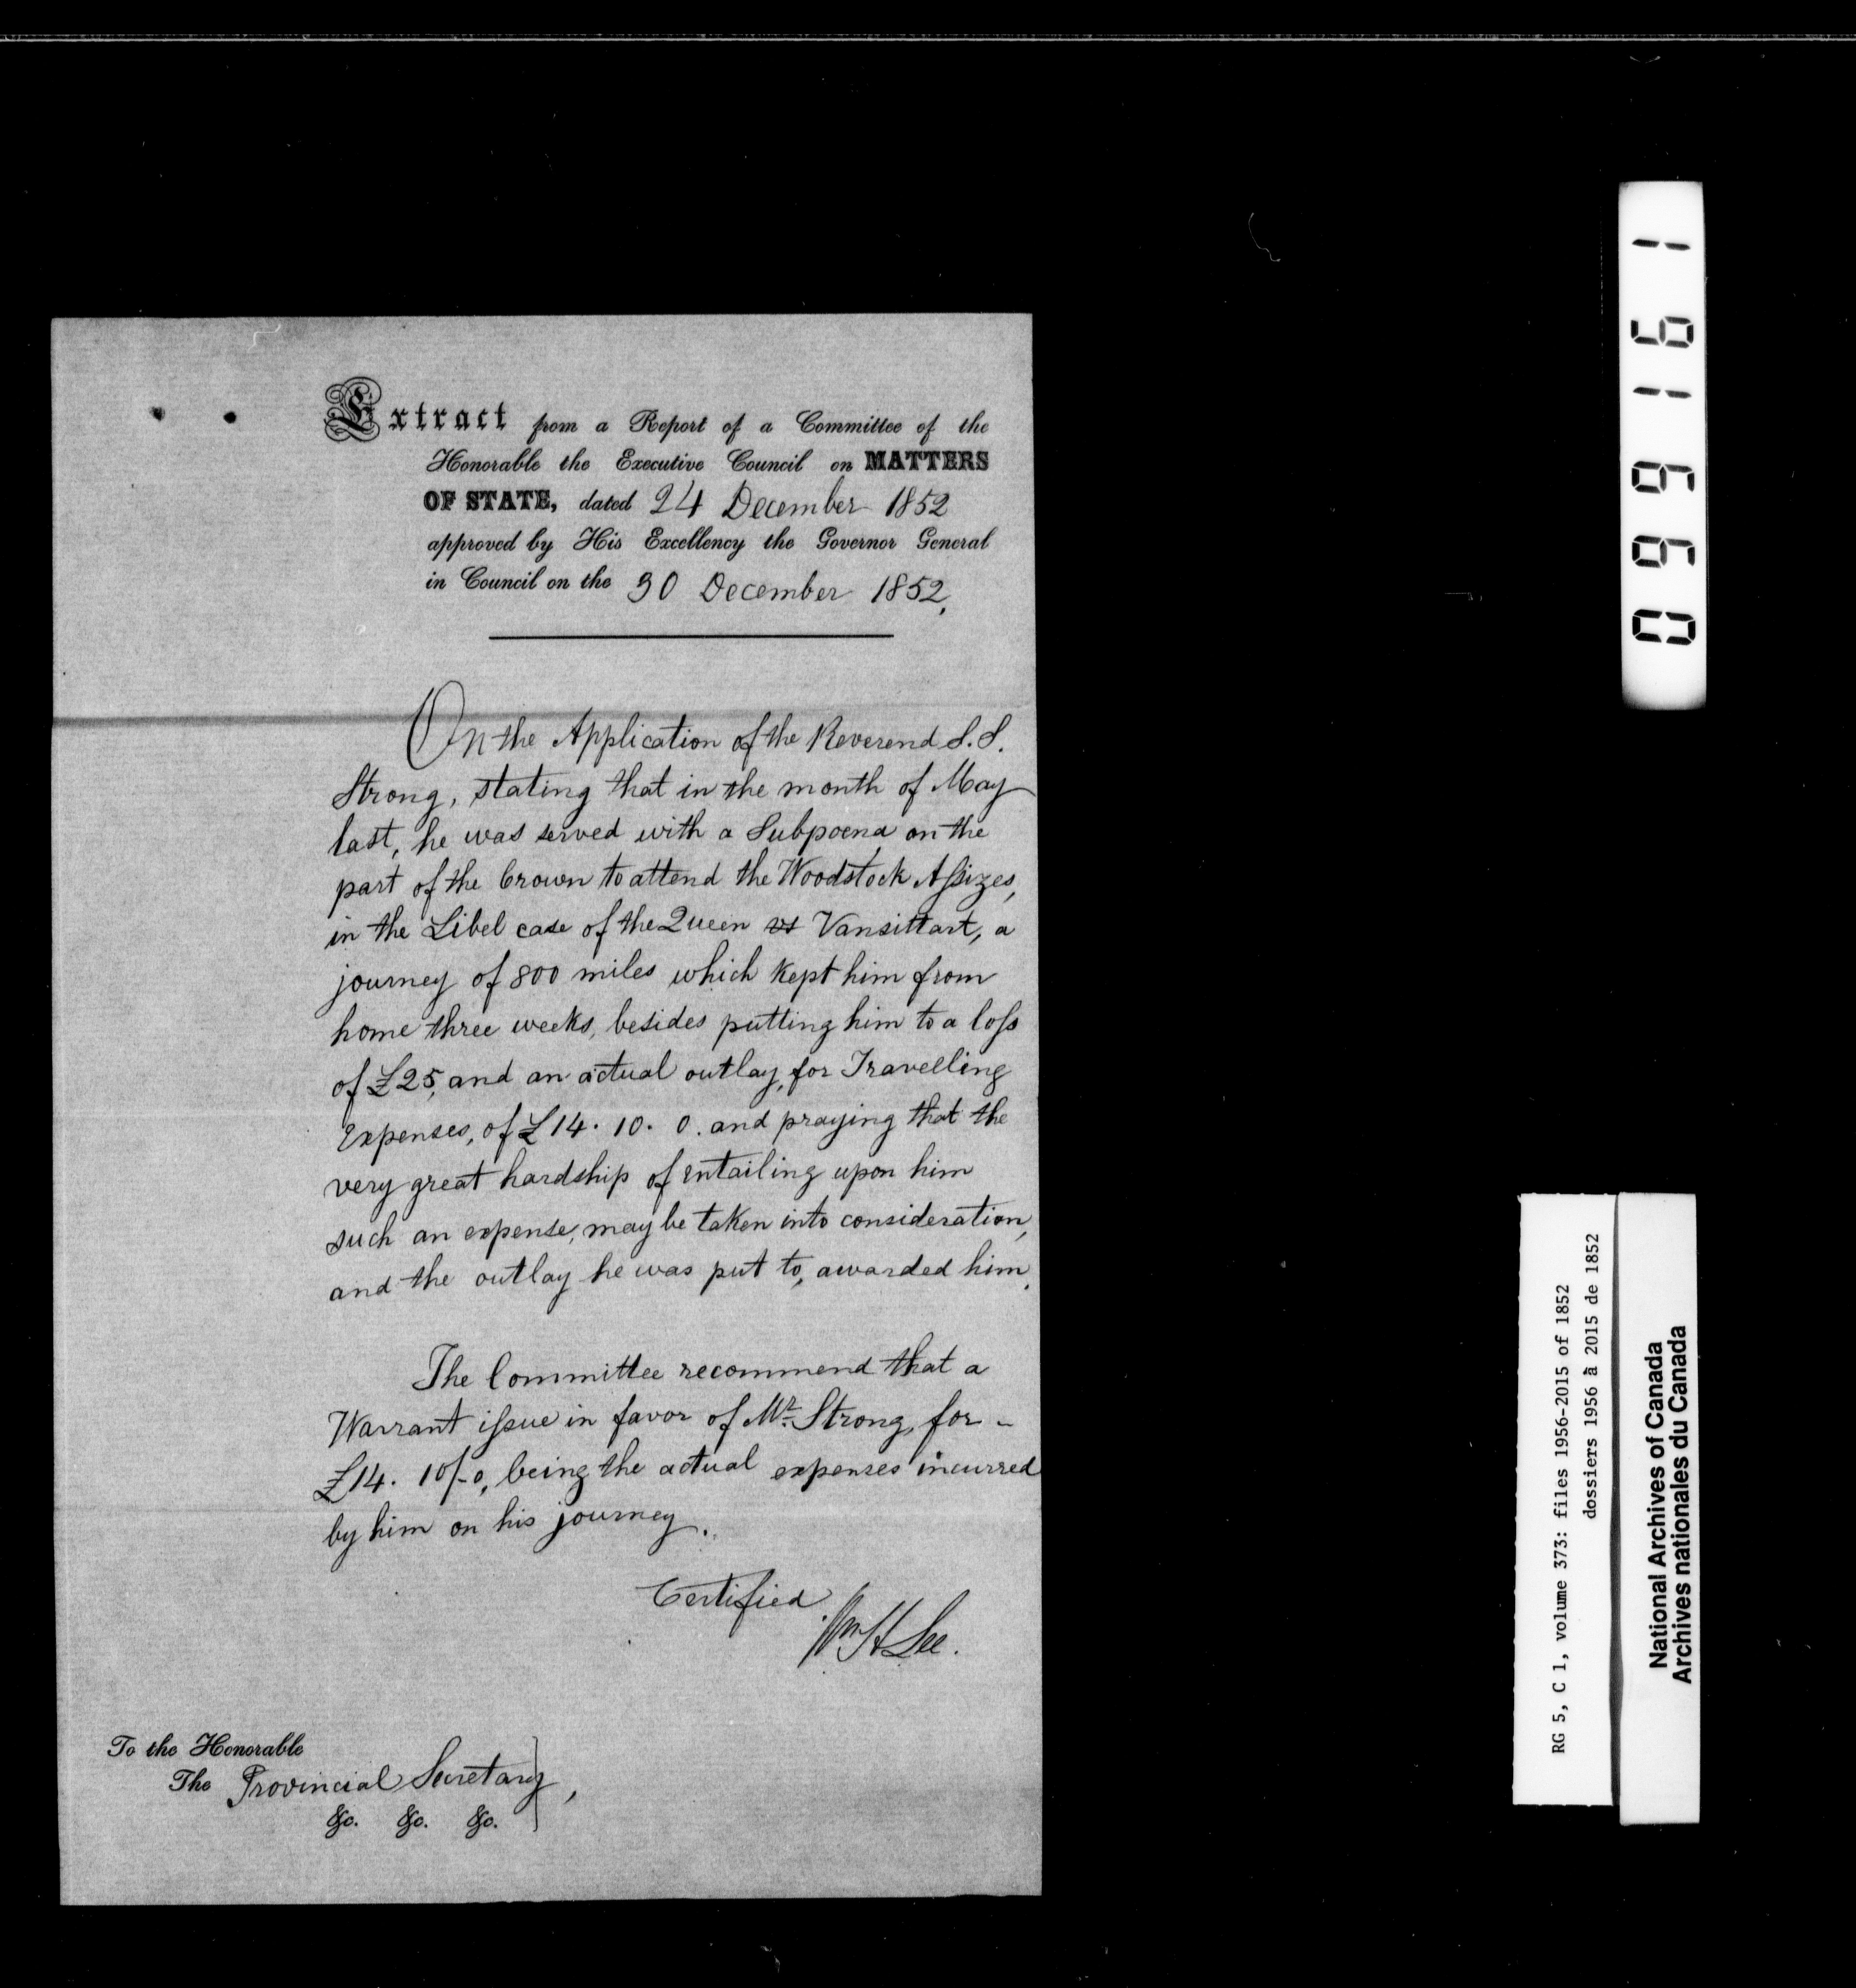 Extract from a Report of a Committee of the
Honorable the Executive Council on MATTERS
OF STATE, dated 24 December 1852
approved by His Excellency the Governor General
in Council on the 30 December 1852,
On the Application of the Reverend S. S.
Strong, stating that in the month of May
last, he was served with a Subpoena on the
part of the Crown to attend the Woodstock Assizes,
in the Libel case of the Queen vs Vansittart, a
journey of 800 miles which kept him from
home three weeks, besides putting him to a loss
of £25, and an actual outlay, for Travelling
Expenses, of £14. 10. 0. and praying that the
very great hardship of entailing upon him
such an expense, may be taken into consideration,
and the outlay he was put to, awarded him.
The Committee recommend that a
Warrant issue in favor of Mr. Strong, for -
£14. 10/-0, being the actual expenses incurred
by him on his journey.
Certified
Wm H Lee.
To the Honorable
The Provincial Secretary,
&c. &c. &c.
099161
RG 5, C 1, volume 373: files 1956-2015 of 1852
dossiers 1956 à 2015 de 1852
National Archives of Canada
Archives nationales du Canada